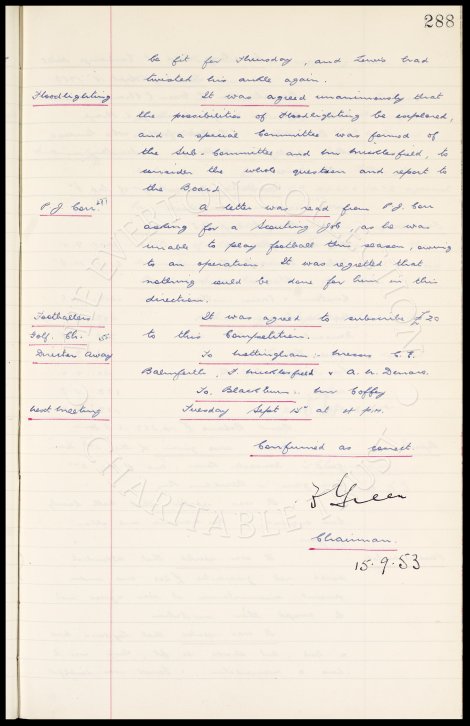 288
be fit for Thursday, and Lewis had
twisted his ankle again.
Floodlighting It was agreed unanimously that
the possibilities of Floodlighting be explored,
and a special Committee was formed of
the Sub-Committee and Mr Micklesfield, to
consider the whole question and report to
the Board
P J Corr A letter was read from P.J. Corr
asking for a Scouting Job, as he was
unable to play football this season, owing
to an operation. It was regretted that
nothing could be done for him in this
direction.
Footballers It was agreed to subscribe £20
Golf. Ch. to this Competition.
Director Away To Nottingham:- Messrs C.E.
Balmforth, F. Micklesfield & A. W. Denaro.
To Blackburn:- Mr Coffey
Next meeting Tuesday Sept 15th at 4 P.M.
Confirmed as correct.
F Green
Chairman.
15.9.53
THE EVERTON FC
CHARITABLE TRUST